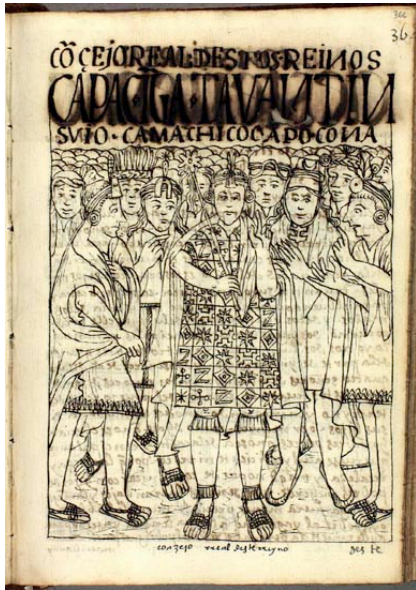 36
CŌÇEJO REAL DESTOS REINOS
CAPAC ĪGA TAVANTIN
SVIO · CAMACHICOC APOCONA
conzejo rreal deste rreyno
des te